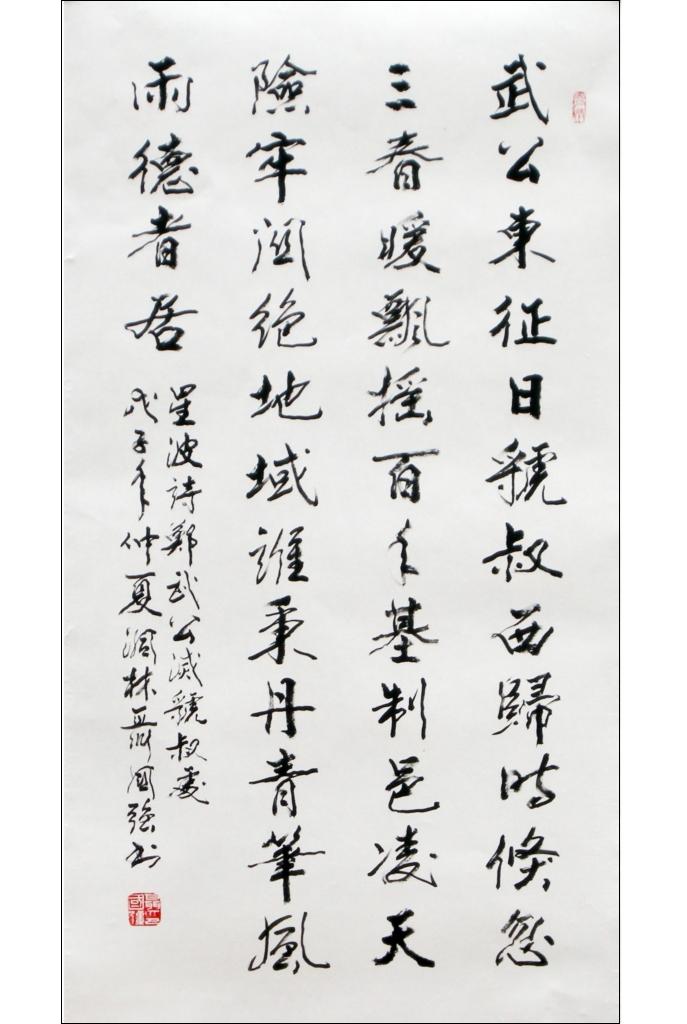 武公東征日虢叔西歸時倏忽
三春暖飄摇百年基制邑凌天
險牢関絶地域誰秉丹青筆風
雨德者居
星波詩鄭武公滅虢叔處
戊子年仲夏 林 國強书